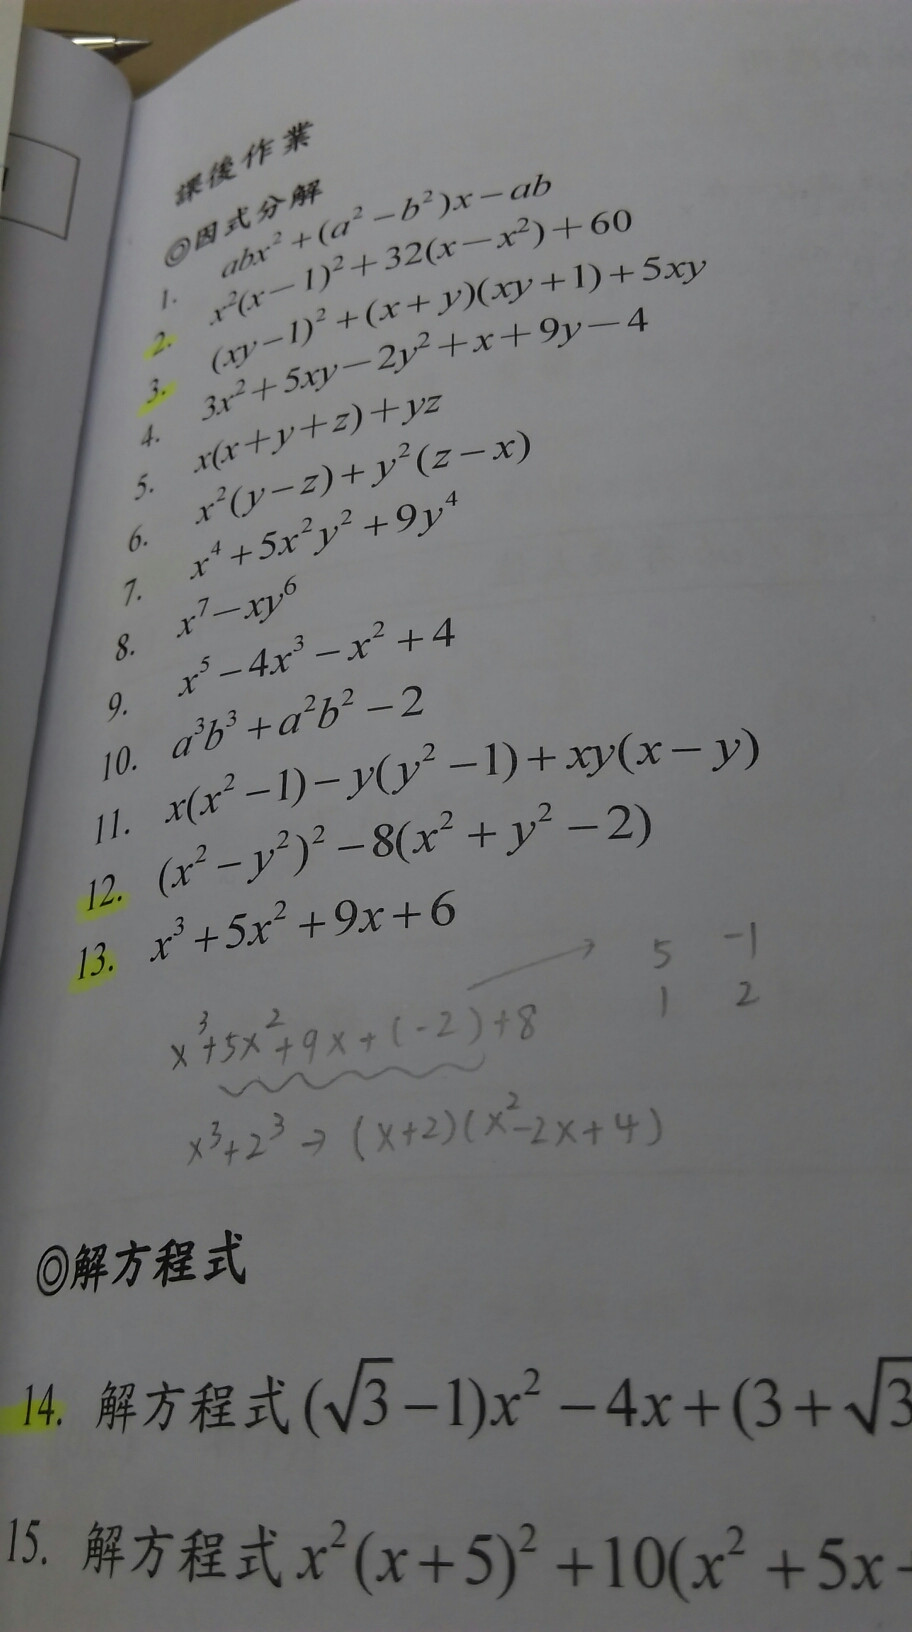 課後作業
◎因式分解
1. abx²+(a²−b²)x−ab
2. x²(x−1)²+32(x−x²)+60
3. (xy−1)²+(x+y)(xy+1)+5xy
4. 3x²+5xy−2y²+x+9y−4
5. x(x+y+z)+yz
6. x²(y−z)+y²(z−x)
7. x⁴+5x²y²+9y⁴
8. x⁷−xy⁶
9. x⁵−4x³−x²+4
10. a³b³+a²b²−2
11. x(x²−1)−y(y²−1)+xy(x−y)
12. (x²−y²)²−8(x²+y²−2)
13. x³+5x²+9x+6
5 -1
1 2
x³+5x²+9x+(-2)+8
x³+2³→(x+2)(x²-2x+4)
◎解方程式
14. 解方程式(√3−1)x²−4x+(3+√3
15. 解方程式x²(x+5)²+10(x²+5x-